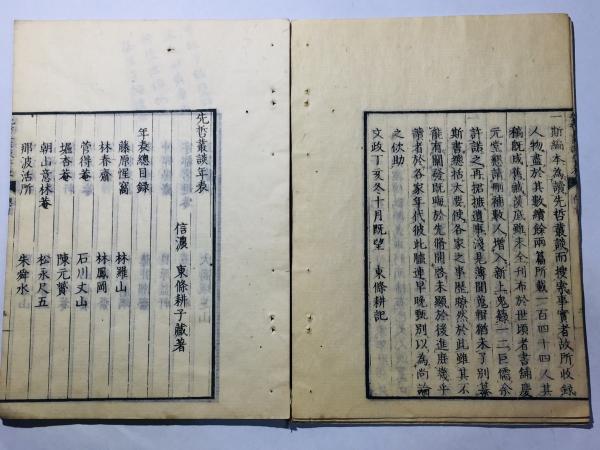 一斯編本為讀先哲叢談而搜索事實者故所收錄
人物盡於其數續餘兩篇所載一百四十四人其
稿既成舊藏篋底雖未全刊布於世頃者書鋪慶
元堂懇請刪補數人增入新上鬼籙一二巨儒余
許諾之再摭遺事淺見薄聞蒐楫猶未了別纂
斯書總括大要使各家之事歷瞭然於此雖其不
能有關發既晦於先將開啓未顯於後進庶幾乎
讀者於各家年代彼此臚連早晚甄別以為尚論
之伙助
文政丁亥冬十月既望 東條耕記
先哲叢談年表
信濃 東條耕子藏著
年表總目錄
藤原惺窩 林羅山
林春齋 林鳳岡
菅得菴 石川丈山
堀杏菴 陳元贇
朝山意林菴 松永尺五
那波活所 朱舜水